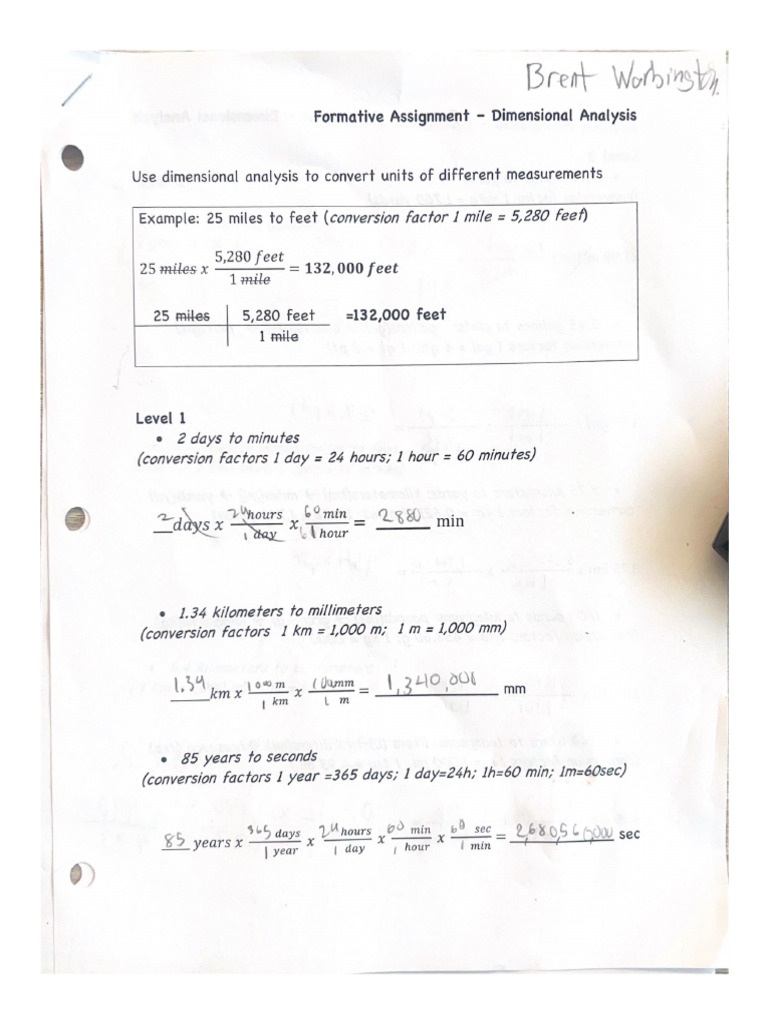 Brent Worbington.
Formative Assignment – Dimensional Analysis
Use dimensional analysis to convert units of different measurements
Example: 25 miles to feet (conversion factor 1 mile = 5,280 feet)
25 miles x 5,280 feet / 1 mile = 132,000 feet
25 miles | 5,280 feet =132,000 feet
1 mile
Level 1
• 2 days to minutes
(conversion factors 1 day = 24 hours; 1 hour = 60 minutes)
2 days x 24 hours / 1 day x 60 min / 1 hour = 2880 min
• 1.34 kilometers to millimeters
(conversion factors 1 km = 1,000 m; 1 m = 1,000 mm)
1.34 km x 1000 m / 1 km x 1000 mm / 1 m = 1,340,000 mm
• 85 years to seconds
(conversion factors 1 year =365 days; 1 day=24h; 1h=60 min; 1m=60sec)
85 years x 365 days / 1 year x 24 hours / 1 day x 60 min / 1 hour x 60 sec / 1 min = 2,680,560,000 sec